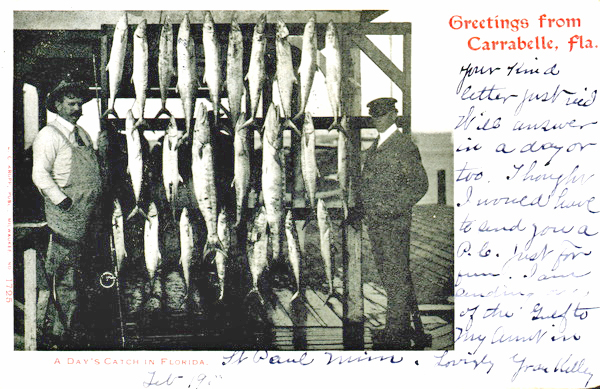 Greetings from
Carrabelle, Fla.
Your Kind
letter just rec'd
Will answer
in a day or
too. Thought
I would have
to send you a
P.C. just for
fun. I am
sending
of the Gulf to
My Aunt in
St Paul Minn.
Lovingly
A DAY'S CATCH IN FLORIDA.
Feb 19